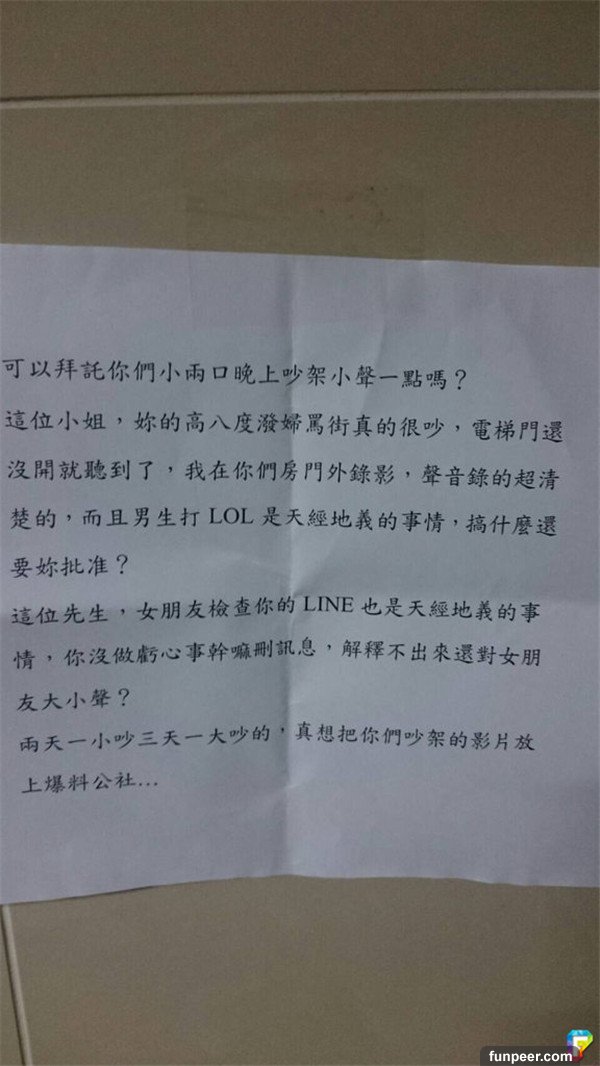 可以拜託你們小兩口晚上吵架小聲一點嗎？
這位小姐，妳的高八度潑婦罵街真的很吵，電梯門還
沒開就聽到了，我在你們房門外錄影，聲音錄的超清
楚的，而且男生打 LOL 是天經地義的事情，搞什麼還
要妳批准？
這位先生，女朋友檢查你的 LINE 也是天經地義的事
情，你沒做虧心事幹嘛刪訊息，解釋不出來還對女朋
友大小聲？
兩天一小吵三天一大吵的，真想把你們吵架的影片放
上爆料公社…
funpeer.com